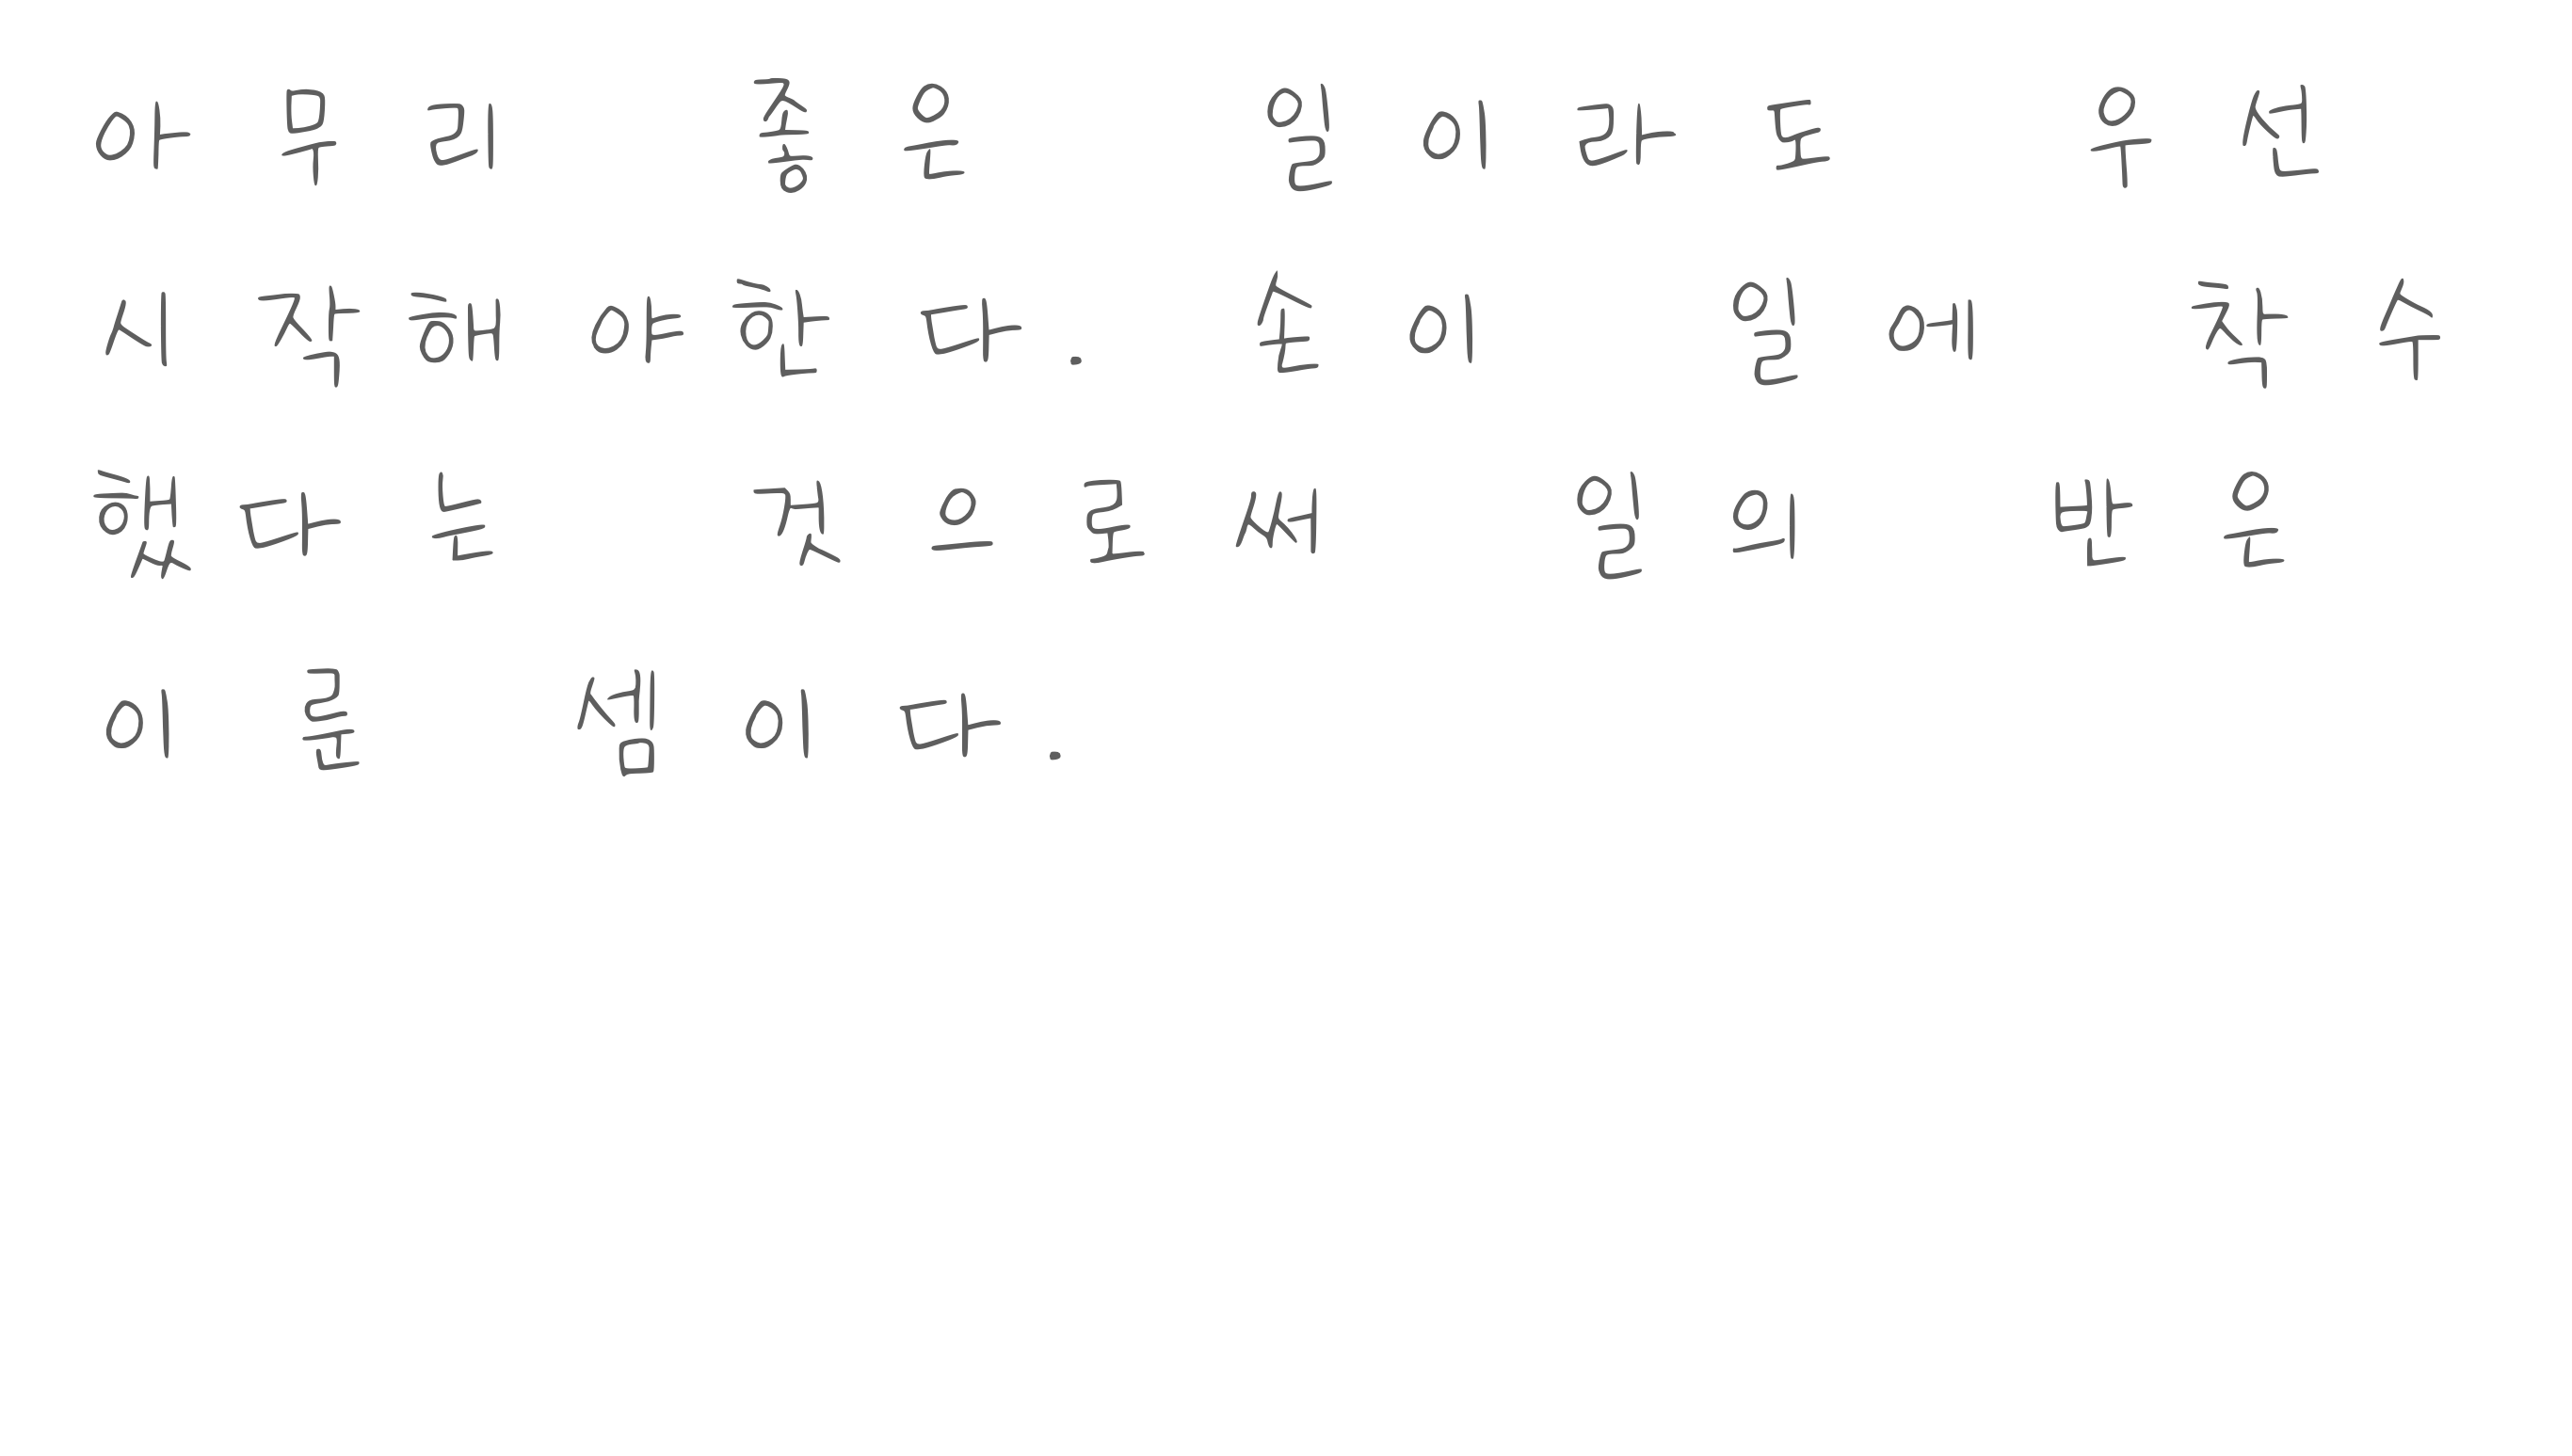 아무리 좋은 일이라도 우선
시작해야한다. 손이 일에 착수
했다는 것으로써 일의 반은
이룬 셈이다.